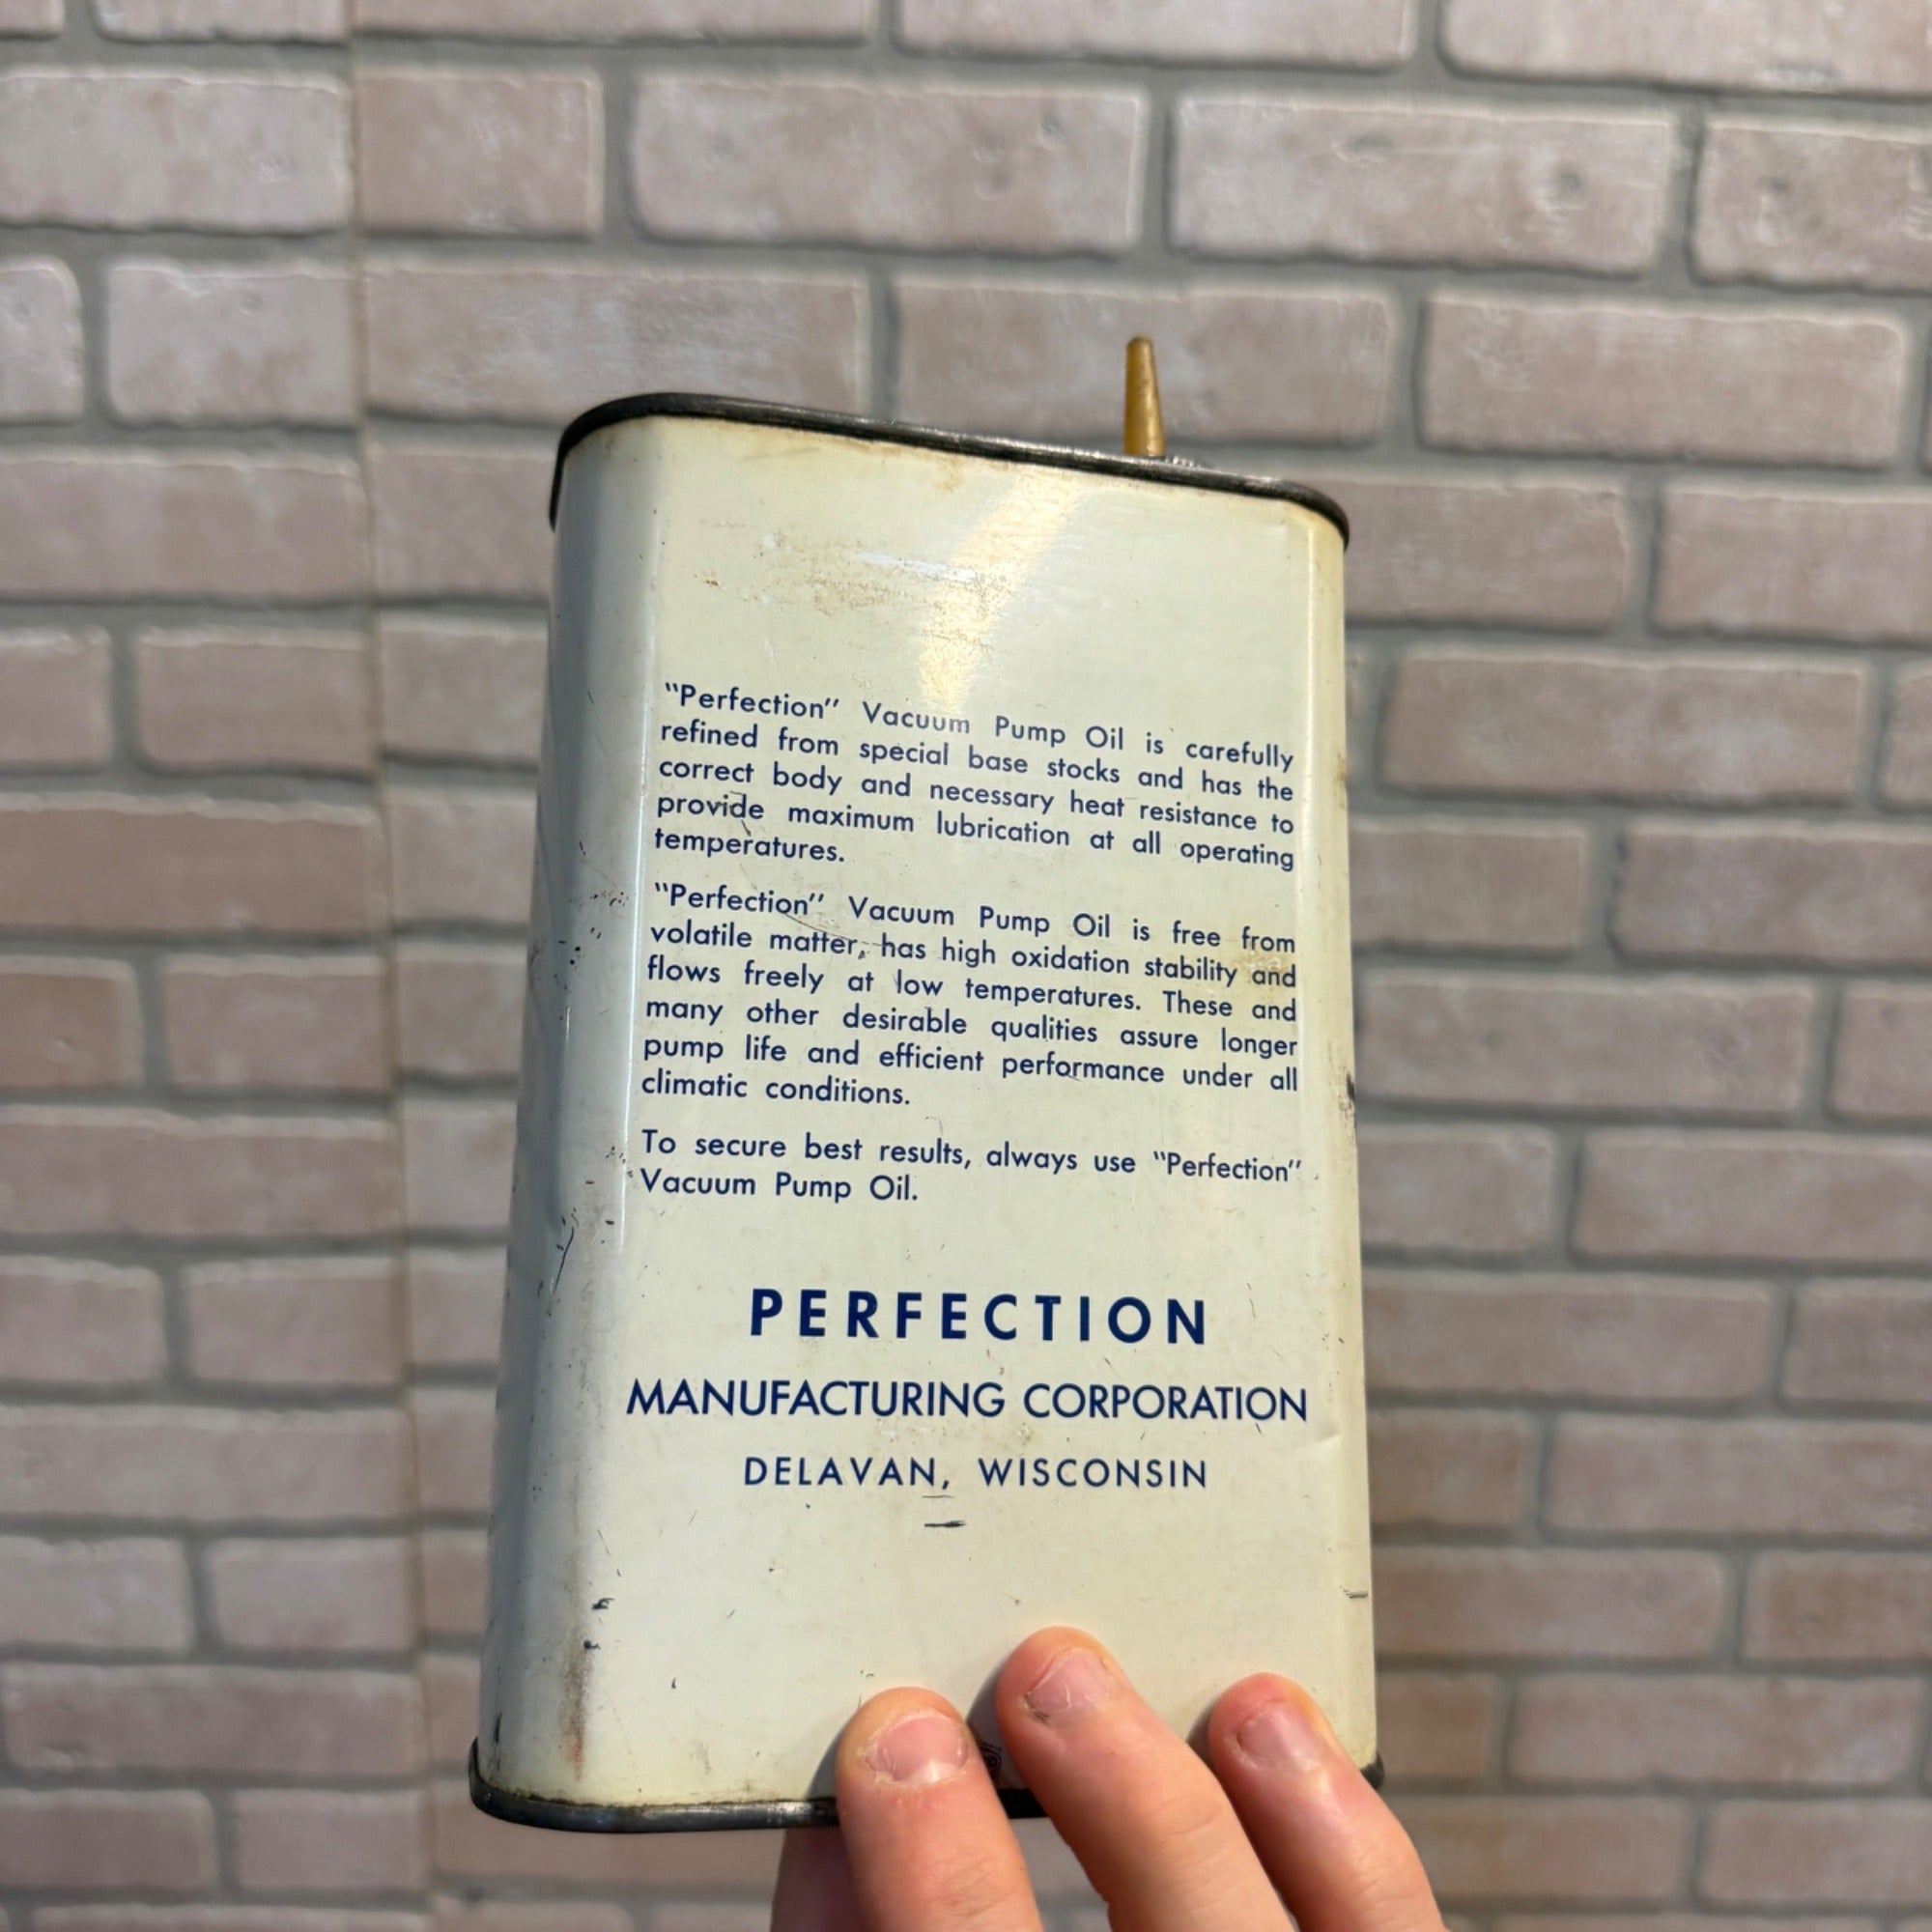 "Perfection" Vacuum Pump Oil is carefully
refined from special base stocks and has the
correct body and necessary heat resistance to
provide maximum lubrication at all operating
temperatures.
"Perfection" Vacuum Pump Oil is free from
volatile matter, has high oxidation stability and
flows freely at low temperatures. These and
many other desirable qualities assure longer
pump life and efficient performance under all
climatic conditions.
To secure best results, always use "Perfection"
Vacuum Pump Oil.
PERFECTION
MANUFACTURING CORPORATION
DELAVAN, WISCONSIN